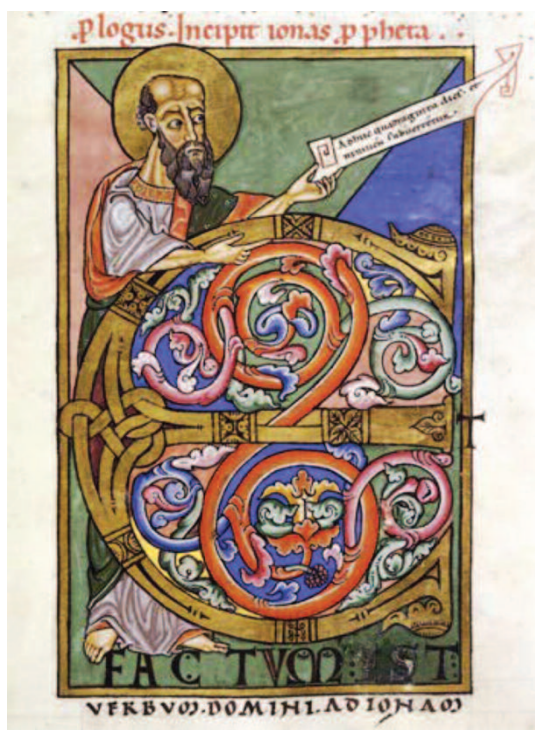 .p logus. Incipit ionas .p pheta . . .
Adhuc quadraginta dies. et
niniue subuertetur.
E
T
FACTVM EST:
VERBVM. DOMINI. AD IONAM